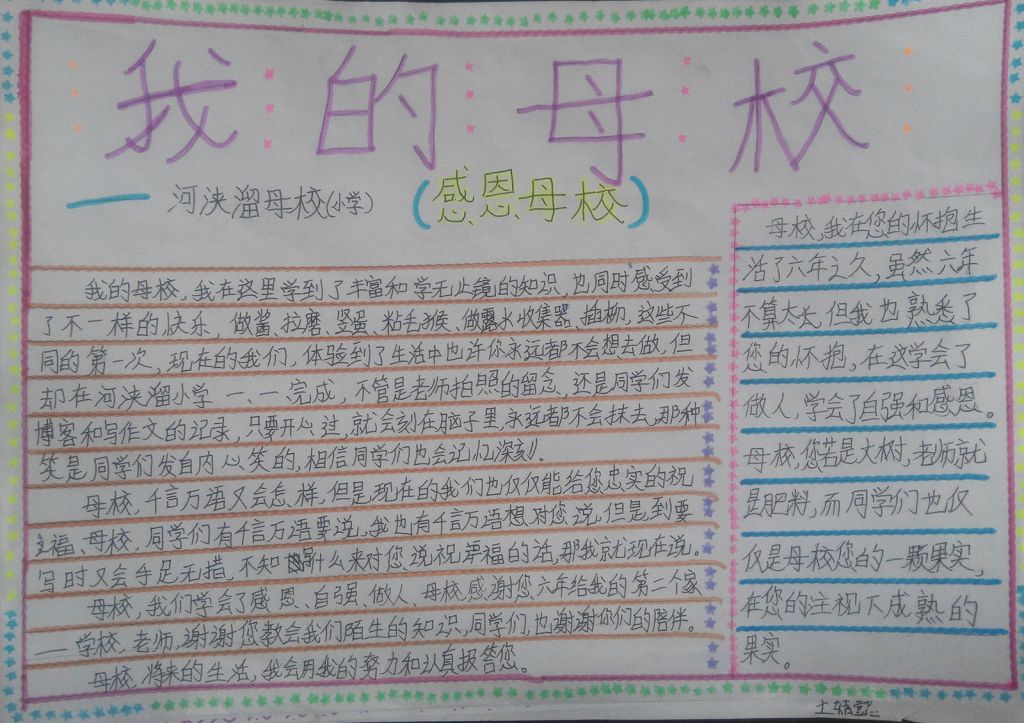 我的母校
河浃溜母校(小学)
(感恩母校)
我的母校,我在这里学到了丰富和学无止镜的知识,也同时感受到
了不一样的快乐,做酱、拉磨、竖蛋、粘毛猴、做露水收集器、插柳,这些不
同的第一次,现在的我们,体验到了生活中也许你永远都不会想去做,但
却在河浃溜小学一、一、完成,不管是老师拍照的留念,还是同学们发
博客和写作文的记录,只要开心过,就会刻在脑子里,永远都不会抹去,那种
笑是同学们发自内心笑的,相信同学们也会记忆深刻!。
母校,千言万语又会怎样,但是,现在的我们也仅仅能给您忠实的祝
福、母校,同学们有千言万语要说,我也有千言万语想对您说,但是,到要
写时又会手足无措,不知什么来对您说祝福的话,那我就现在说。
母校,我们学会了感恩、自强、做人、母校,感谢您六年给我的第二个家
——学校,老师,谢谢您教会我们陌生的知识,同学们,也谢谢你们的陪伴。
母校,将来的生活,我会用我的努力和认真报答您。
母校,我在您的怀抱生
活了六年之久,虽然六年
不算太长,但我也熟悉了
您的怀抱,在这学会了
做人,学会了自强和感恩。
母校,您若是大树,老师就
是肥料,而同学们也仅
仅是母校您的一颗果实,
在您的注视下成熟的
果实。